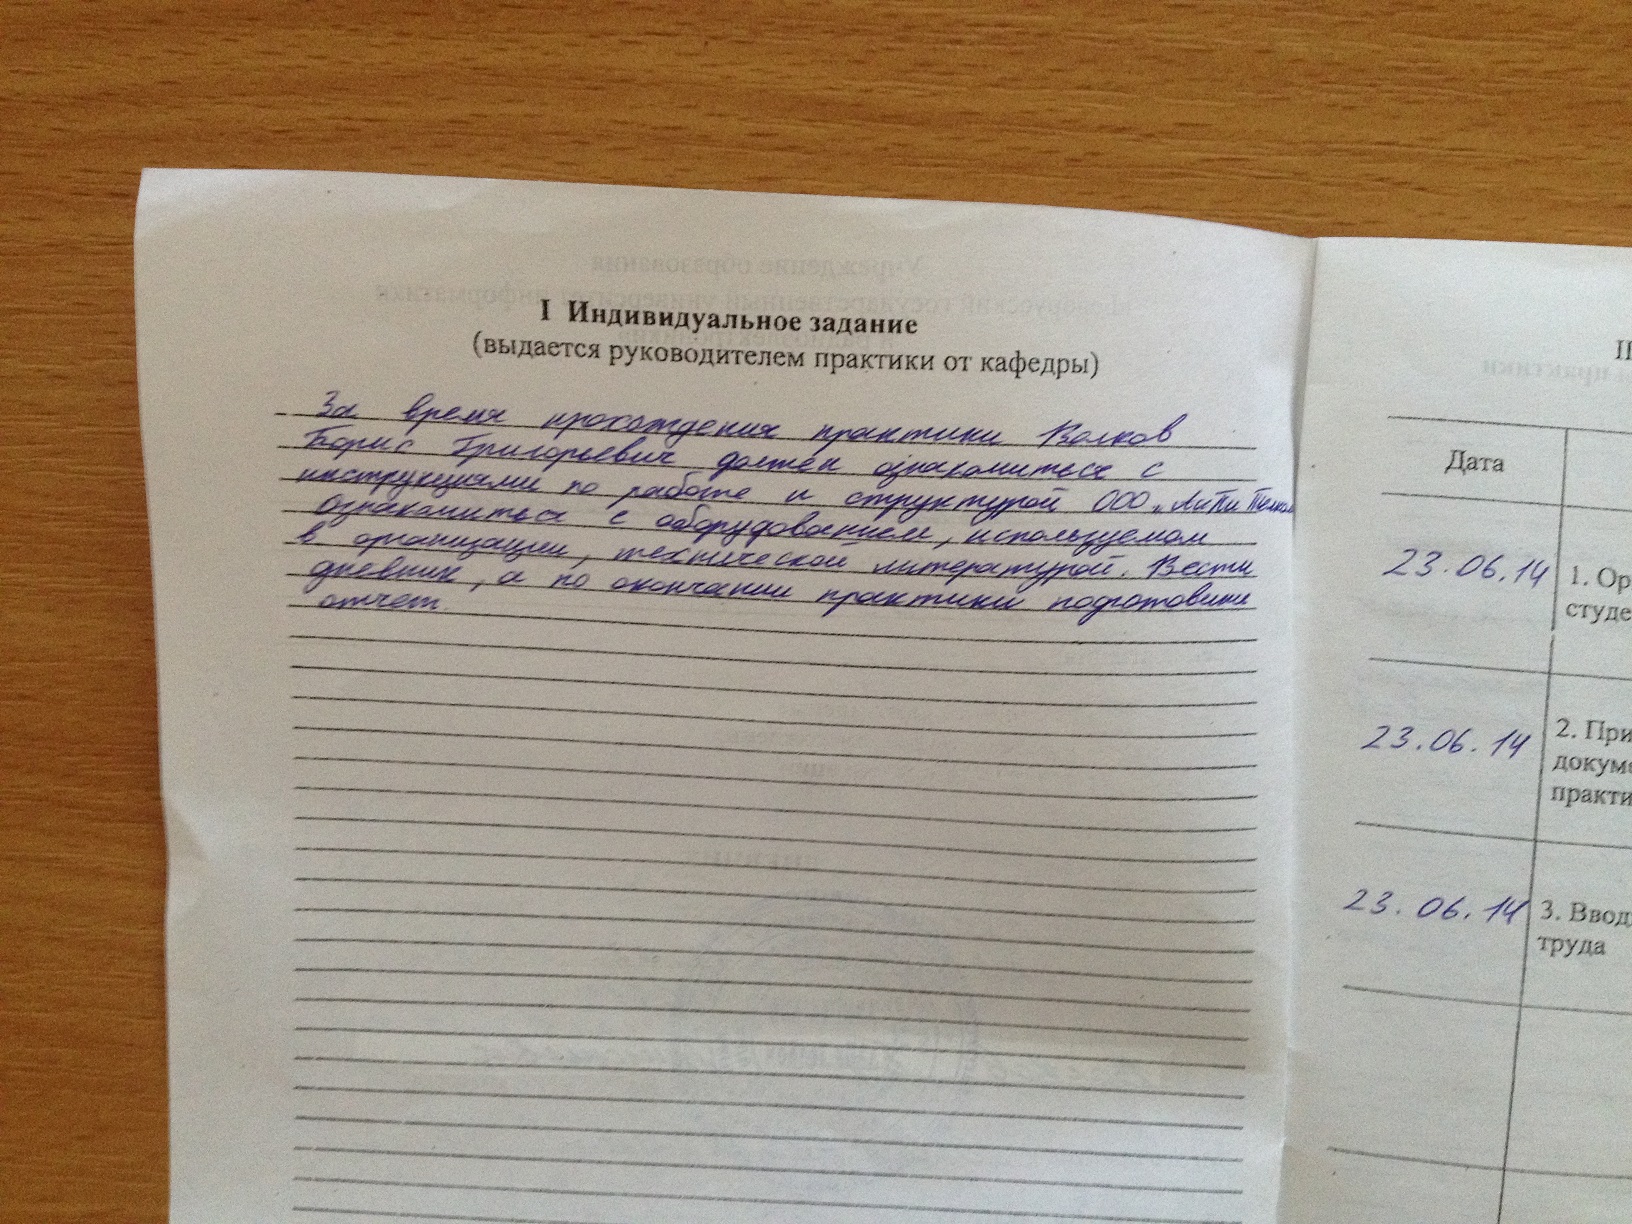 I Индивидуальное задание
(выдается руководителем практики от кафедры)
За время прохождения практики Волков
Борис Григорьевич должен ознакомиться с
инструкциями по работе и структурой ООО „
Ознакомиться с оборудованием, используемом
в организации, технической литературой. Вести
дневник, а по окончании практики подготовить
отчет
Дата
23.06.14
1. Ор
студе
23.06.14
2. При
докуме
практи
23.06.14
3. Ввод
труда